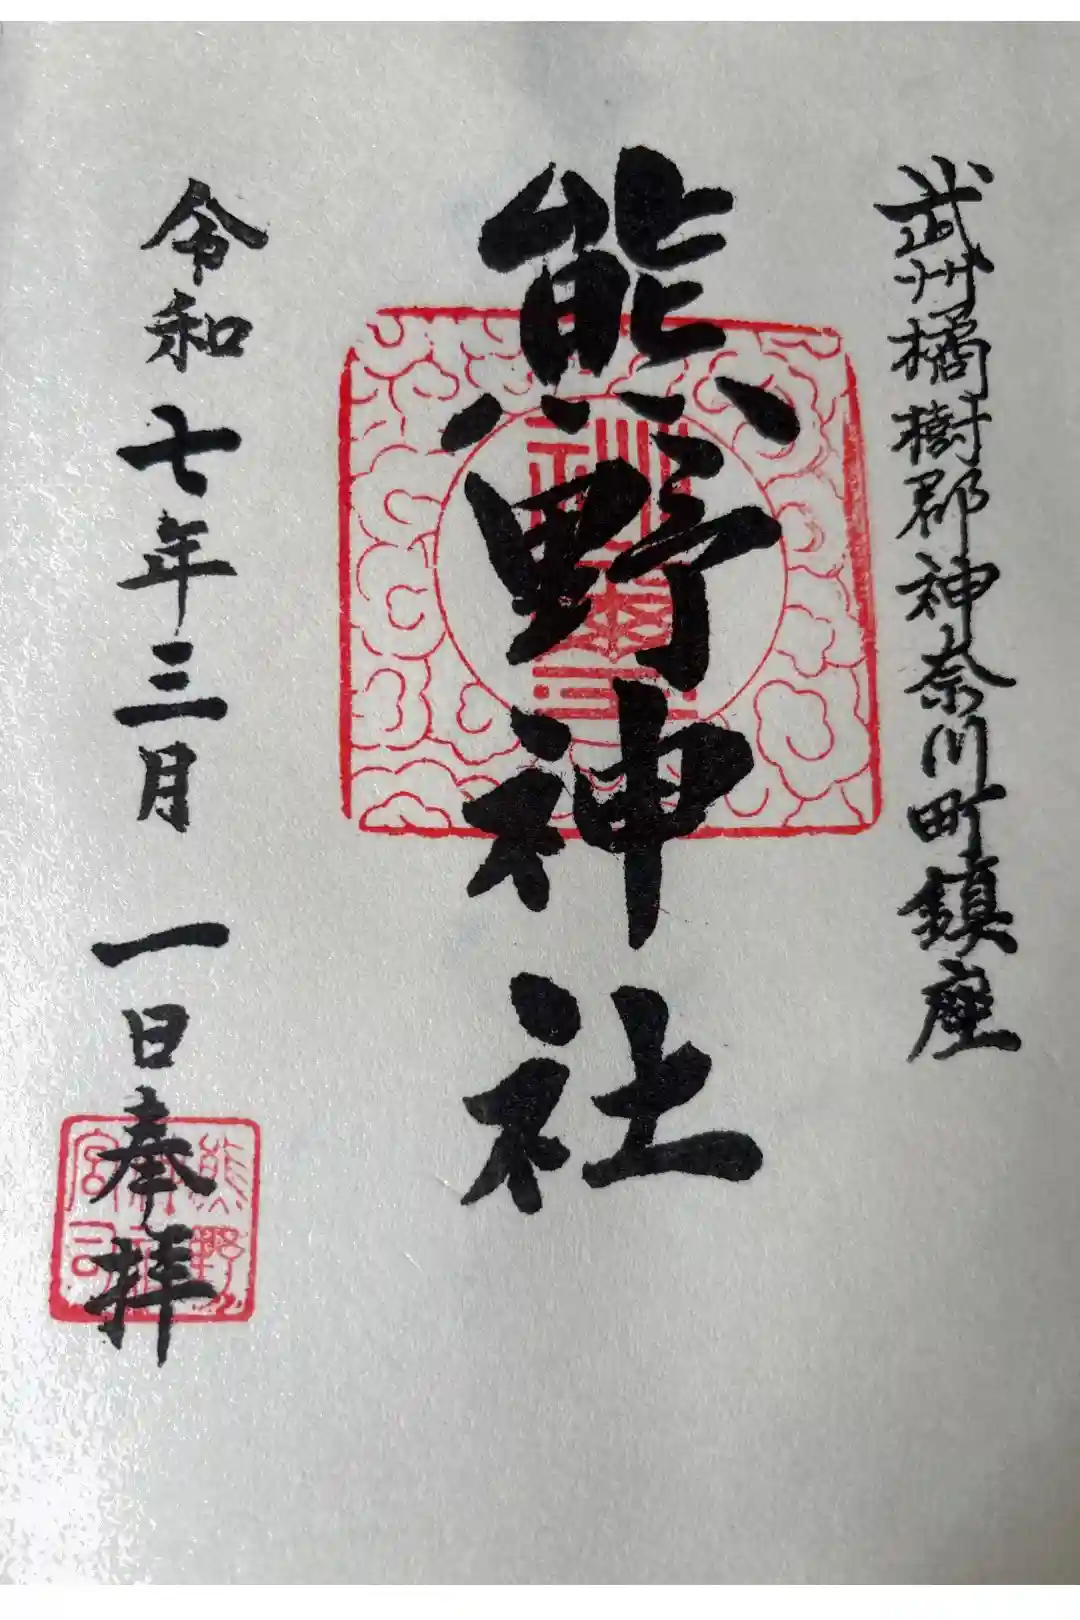 武州橘樹郡神奈川町鎮座
熊野神社
令和七年三月一日奉拝
熊野
宮司